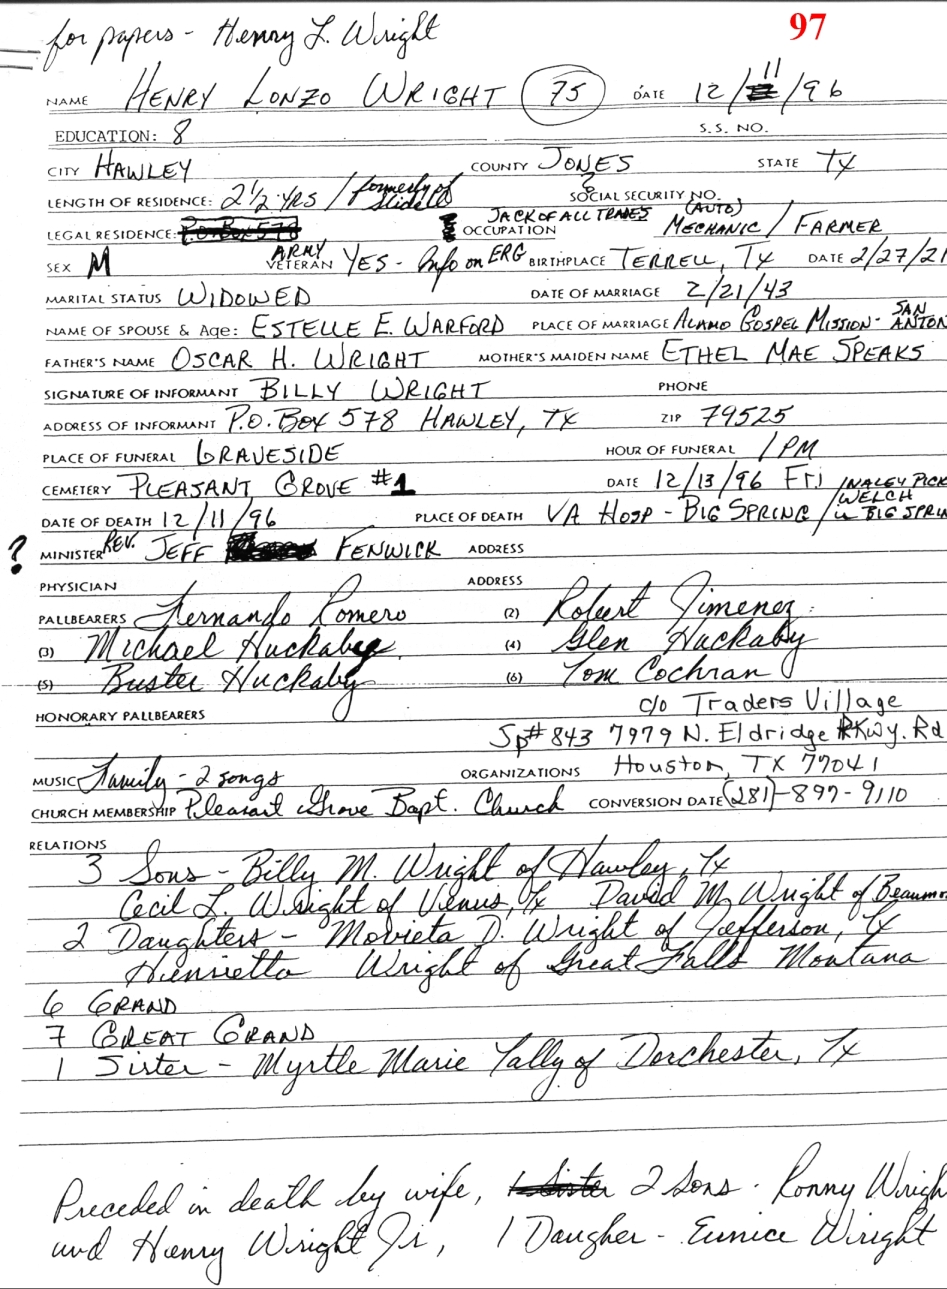 for papers - Henry L. Wright 97
NAME HENRY LONZO WRIGHT 75 DATE 12/11/96
EDUCATION: 8 S.S. NO.
CITY HAWLEY COUNTY JONES STATE TX
LENGTH OF RESIDENCE: 2 1/2 YRS / formerly of Slidell SOCIAL SECURITY NO.
LEGAL RESIDENCE: P.O. Box 578 OCCUPATION JACK OF ALL TRADES (AUTO) MECHANIC / FARMER
SEX M ARMY VETERAN YES - Info on ERG BIRTHPLACE TERRELL, TX DATE 2/27/21
MARITAL STATUS WIDOWED DATE OF MARRIAGE 2/21/43
NAME OF SPOUSE & Age: ESTELLE E. WARFORD PLACE OF MARRIAGE ALAMO GOSPEL MISSION - SAN ANTON
FATHER'S NAME OSCAR H. WRIGHT MOTHER'S MAIDEN NAME ETHEL MAE SPEAKS
SIGNATURE OF INFORMANT BILLY WRIGHT PHONE
ADDRESS OF INFORMANT P.O. BOX 578 HAWLEY, TX ZIP 79525
PLACE OF FUNERAL GRAVESIDE HOUR OF FUNERAL 1 PM
CEMETERY PLEASANT GROVE #1 DATE 12/13/96 FRI
DATE OF DEATH 12/11/96 PLACE OF DEATH VA HOSP - BIG SPRING / NALEY PICK WELCH in BIG SPRIN
? MINISTER REV. JEFF FENWICK ADDRESS
PHYSICIAN ADDRESS
PALLBEARERS Fernando Romero (2) Robert Jimenez
(3) Michael Huckabee (4) Glen Huckaby
(5) Buster Huckaby (6) Tom Cochran
HONORARY PALLBEARERS c/o Traders Village
Sp# 843 7979 N. Eldridge PKwy. Rd
MUSIC Family - 2 songs ORGANIZATIONS Houston, TX 77041
CHURCH MEMBERSHIP Pleasant Grove Bapt. Church CONVERSION DATE (281)-897-9110
RELATIONS
3 Sons - Billy M. Wright of Hawley, Tx
Cecil L. Wright of Venus, Tx David M. Wright of Beaumo
2 Daughters - Movieta D. Wright of Jefferson, Tx
Henrietta Wright of Great Falls Montana
6 GRAND
7 GREAT GRAND
1 Sister - Myrtle Marie Tally of Dorchester, Tx
Preceded in death by wife, 1 Sister 2 Sons - Ronny Wrigh
and Henry Wright Jr, 1 Daugher - Eunice Wright